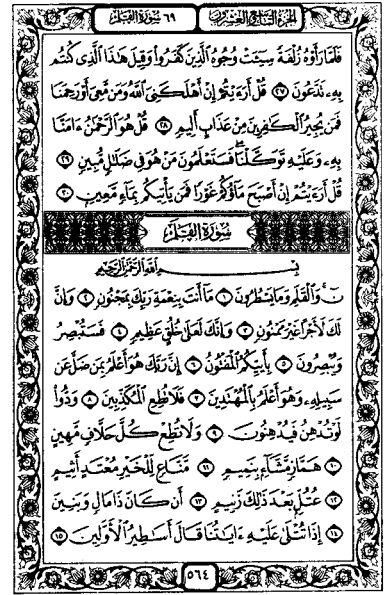 الجزء التاسع والعشرون ٦٩ سورة القلم
فَلَمَّا رَأَوْهُ زُلْفَةً سِيئَتْ وُجُوهُ الَّذِينَ كَفَرُوا وَقِيلَ هَٰذَا الَّذِي كُنتُم
بِهِ تَدَّعُونَ ٢٧ قُلْ أَرَءَيْتُمْ إِنْ أَهْلَكَنِيَ اللَّهُ وَمَن مَّعِيَ أَوْ رَحِمَنَا
فَمَن يُجِيرُ الْكَافِرِينَ مِنْ عَذَابٍ أَلِيمٍ ٢٨ قُلْ هُوَ الرَّحْمَٰنُ ءَامَنَّا
بِهِ وَعَلَيْهِ تَوَكَّلْنَا فَسَتَعْلَمُونَ مَنْ هُوَ فِي ضَلَالٍ مُّبِينٍ ٢٩
قُلْ أَرَءَيْتُمْ إِنْ أَصْبَحَ مَاؤُكُمْ غَوْرًا فَمَن يَأْتِيكُم بِمَاءٍ مَّعِينٍ ٣٠
سورة القلم
بِسْمِ اللَّهِ الرَّحْمَٰنِ الرَّحِيمِ
ن وَالْقَلَمِ وَمَا يَسْطُرُونَ ١ مَا أَنتَ بِنِعْمَةِ رَبِّكَ بِمَجْنُونٍ ٢ وَإِنَّ
لَكَ لَأَجْرًا غَيْرَ مَمْنُونٍ ٣ وَإِنَّكَ لَعَلَىٰ خُلُقٍ عَظِيمٍ ٤ فَسَتُبْصِرُ
وَيُبْصِرُونَ ٥ بِأَييِّكُمُ الْمَفْتُونُ ٦ إِنَّ رَبَّكَ هُوَ أَعْلَمُ بِمَن ضَلَّ عَن
سَبِيلِهِ وَهُوَ أَعْلَمُ بِالْمُهْتَدِينَ ٧ فَلَا تُطِعِ الْمُكَذِّبِينَ ٨ وَدُّوا
لَوْ تُدْهِنُ فَيُدْهِنُونَ ٩ وَلَا تُطِعْ كُلَّ حَلَّافٍ مَّهِينٍ
١٠ هَمَّازٍ مَّشَّاءٍ بِنَمِيمٍ ١١ مَّنَّاعٍ لِّلْخَيْرِ مُعْتَدٍ أَثِيمٍ
١٢ عُتُلٍّ بَعْدَ ذَٰلِكَ زَنِيمٍ ١٣ أَن كَانَ ذَا مَالٍ وَبَنِينَ
١٤ إِذَا تُتْلَىٰ عَلَيْهِ ءَايَاتُنَا قَالَ أَسَاطِيرُ الْأَوَّلِينَ ١٥
٥٦٤